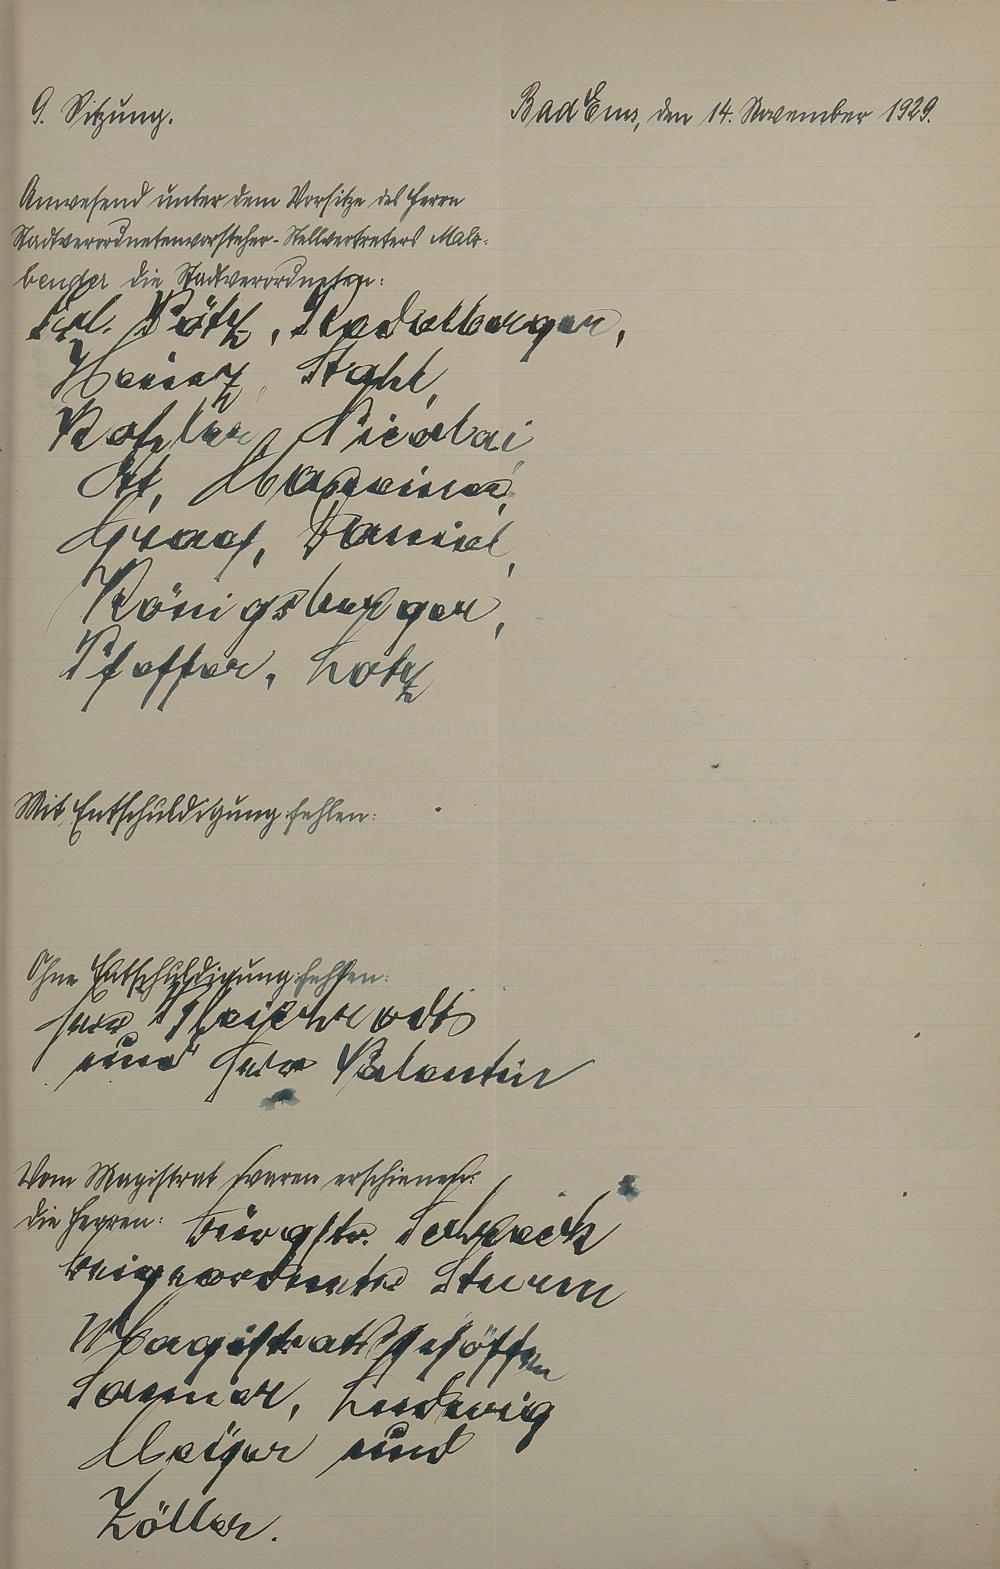 9. Sitzung.
Bad Ems, den 14. November 1929.
Anwesend unter dem Vorsitze des Herrn
Stadtverordnetenvorsteher-Stellvertreters Mals-
bender die Stadtverordneten:
Frl. Pötz,
Heinz, Stahl,
Kohler, Nicolai
Ott,
Graaf, Daniel,
Königsberger,
Pfeffer, Lotz
Mit Entschuldigung fehlen:
Ohne Entschuldigung fehlen:
Herr
und Herr Valentin
Vom Magistrat waren erschienen:
die Herren: Bürgstr. Schreck
Beigeordneter Sturm
Magistratsschöffen
Sommer, Ludwig
Meijer und
Zöller.